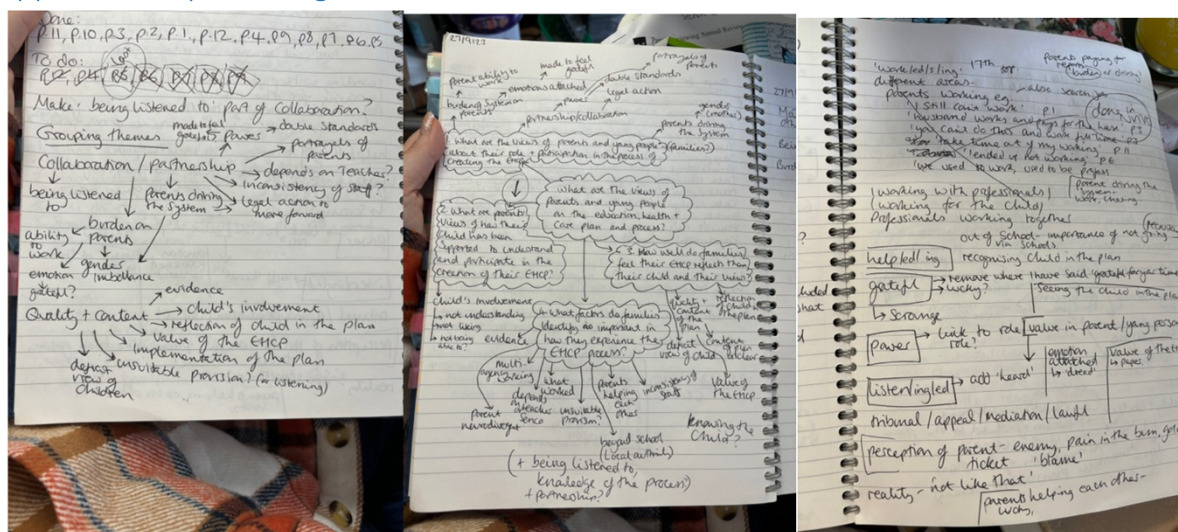 Done:
p.11, p.10, p.3, p.2, p.1, p.12, p.4, p.9, p.8, p.7, p.6, p.5
To do:
Make 'being listened to' part of Collaboration?
Grouping themes
made to feel grateful
Power
double standards
portrayals of parents
Collaboration / partnership
depends on Teacher?
inconsistency of staff?
being listened to
Parents driving the system
legal action to move forward
burden on parents
ability to work
gender imbalance
emotion
grateful?
evidence
Quality + content
child's involvement
reflection of child in the plan
Value of the EHCP
implementation of the plan
unsuitable provision? (or listening)
deficit view of children
27/9/23
made to feel grateful
portrayals of parents
Parent ability to work
emotions attached
double standards
burden on parents
power
legal action
partnership/collaboration
gender (mother)
parents driving the system
1. What are the views of parents and young people (families?)
about their role + participation in the process of
creating the EHCP?
What are the views of
Parents and young people
on the education, health +
care plan and process?
2. What are parents'
views of how their
Child has been
supported to understand
and participate in the
creation of their EHCP?
3. How well do families
feel their EHCP reflects them,
their child and their views?
Child's involvement
not understanding
not liking
not being able to?
evidence
4. What factors do families
identify as important in
how they experience the
EHCP process?
quality + content of the plan
reflection of child in the plan
deficit view of child
content of plan unclear
Value of the EHCP
multi-agency working
what worked
depends on teacher/senco
unsuitable provision?
Parents helping each other
inconsistency of staff
parent neurodivergent
beyond school (Local authority)
knowing the Child?
(+ being listened to,
knowledge of the process?
+ partnership?
'work/ed/s/ing' 17th
different areas.
Parents paying for reports (burden or driving)
parents working eg
also search for
done in NVivo
'I still can't work' p.1
'husband works and pays for the house' p.3
'you can't do this and work full time'
'take time out of my working' p.11
'ended up not working' p.6
we used to work, used to be profess
parent driving the system - work, chasing
(working with professionals)
(working for the child)
Professionals working together
out of School - importance of not going via schools
help/ed/ing
recognising Child in the plan
grateful
remove where I have said 'grateful for your time'
lucky?
Seeing the child in the plan
Strange
power
Link to role?
value in parent/young person
listen/ing/ed
add 'heard'
emotion attached
'dread'
value of the
paper
tribunal / appeal / mediation / lawful
perception of parent - enemy, pain in the bum, golden
ticket 'blame'
reality - 'not like that'
parents helping each other -
lucky,